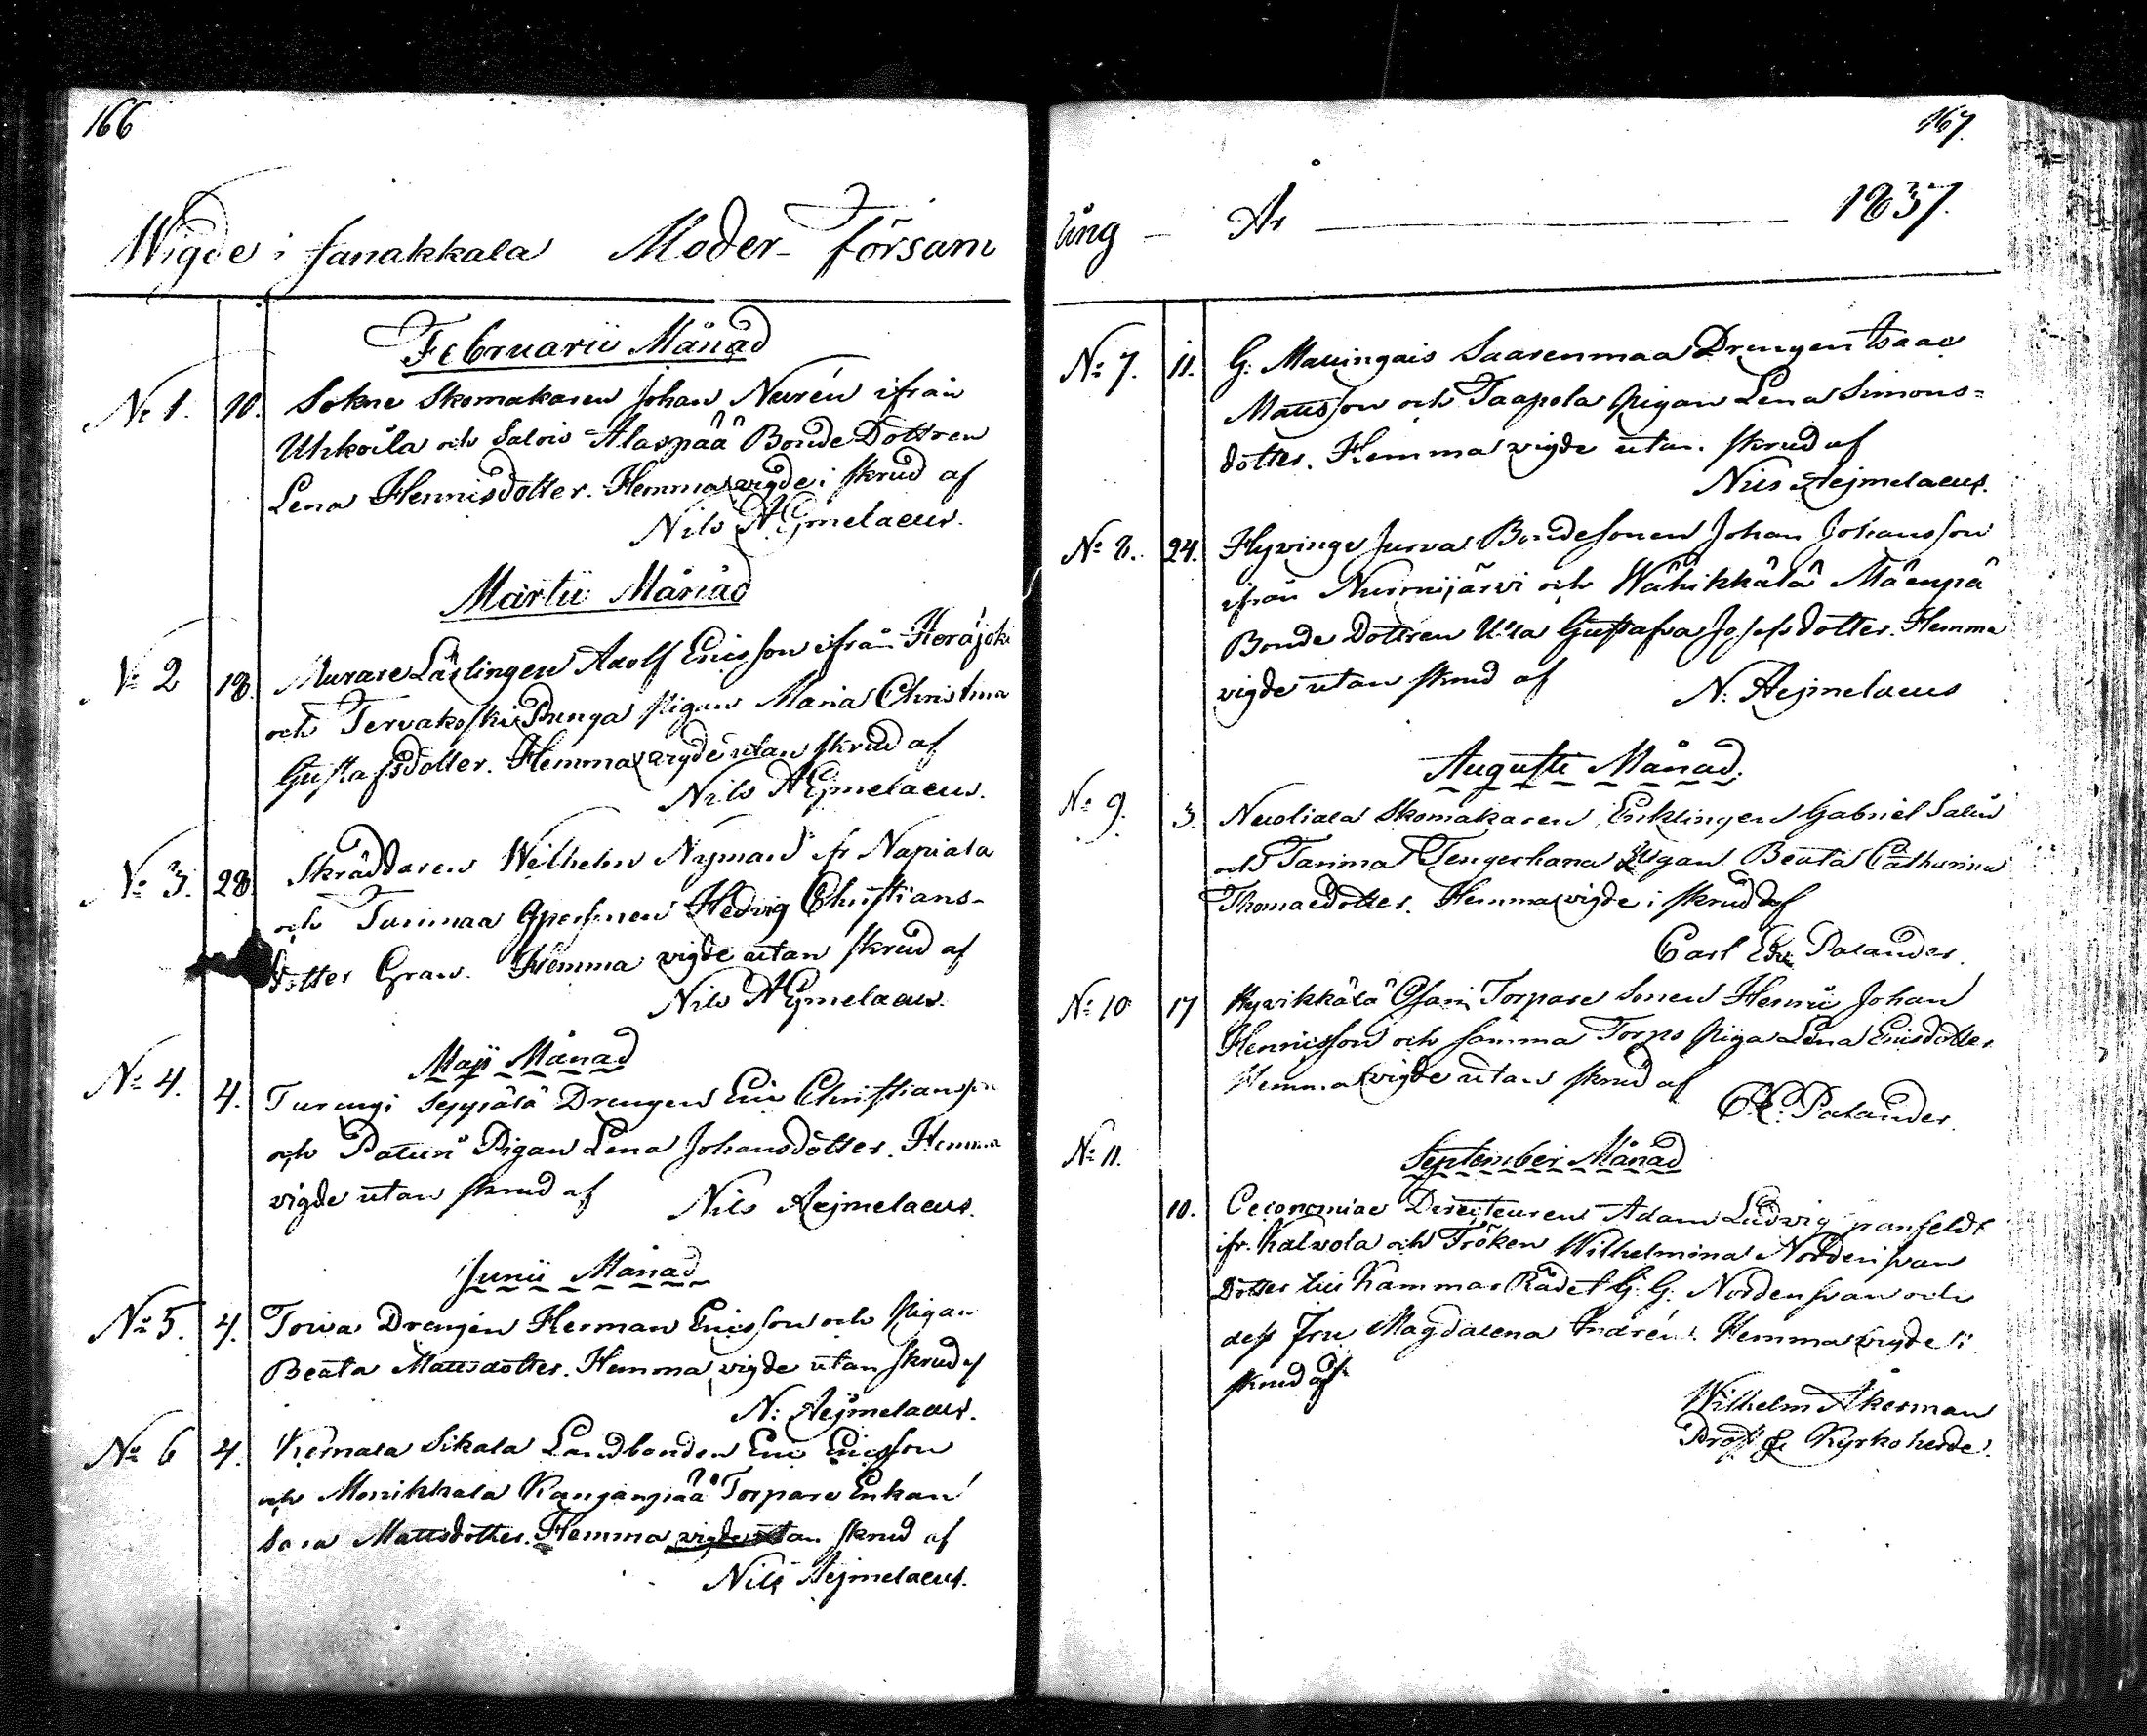 166
Wigde i Janakkala Moder-Församl
Februarii Månad
No 1. 10. Sokne Skomakaren Johan Nurén ifrån
Uhkoila och Salois Alaspää Bonde Dottren
Lena Henricsdotter. Hemma vigde i skrud af
Nils Aejmelaeus.
Martii Månad
No 2 18. Murare Lärlingen Adolf Ericsson ifrån Herajoki
och Tervakoski Drenga Pigan Maria Christina
Gustafsdotter. Hemma vigde utan skrud af
Nils Aejmelaeus.
No 3. 28. Skräddaren Wilhelm Nyman ifr Napiala
och Tarinmaa Hedvig Christians-
dotter Gran. Hemma vigde utan skrud af
Nils Aejmelaeus.
Maji Månad
No 4. 4. Turengi Seppälä Drengen Eric Christiansson
och Patun Pigan Lena Johansdotter. Hemma
vigde utan skrud af Nils Aejmelaeus.
Junii Månad
No 5. 4. Toiva Drengen Herman Ericsson och Pigan
Beata Mattsdotter. Hemma vigde utan skrud af
N: Aejmelaeus.
No 6 4. Kernala Sikala Landbonden Eric Ericsson
och Monikkala Kanganpää Torpare Enkan
Sara Mattsdotter. Hemma vigde utan skrud af
Nils Aejmelaeus.
167.
ling – År 1837.
No 7. 11. G. Mauingais Saarenmaa Drengen Isaac
Mattsson och Taapola Pigan Lena Simons=
dotter. Hemma vigde utan skrud af
Nils Aejmelaeus.
No 8. 24. Hyvinge Jurva Bondesonen Johan Johansson
ifrån Nurmijärvi och Wähikkälä Mäenpä
Bonde Dottren Ulla Gustafva Josefsdotter. Hemma
vigde utan skrud af N: Aejmelaeus
Augusti Månad.
No 9. 3. Skomakaren Enklingen Gabriel Salin
och Tarinma Tengerhana Pigan Beata Catharina
Thomaedotter. Hemma vigde i skrud af
Carl Edv Palander.
No 10 17 Hyvikkälä Ojani Torpare Sonen Henric Johan
Henricsson och samma Torps Piga Lena Ericsdotter
Hemma vigde utan skrud af
C. E. Palander.
No 11.
September Månad
10. Oeconomiae Directeuren Adam Ludvig
ifr. Kalvola och Fröken Wilhelmina Nordensvan
Dotter till Kammar Rådet G. G. Nordensvan och
dess Fru Magdalena Andrén. Hemma vigde i
skrud af
Wilhelm Åkerman
Prost & Kyrkoherde.